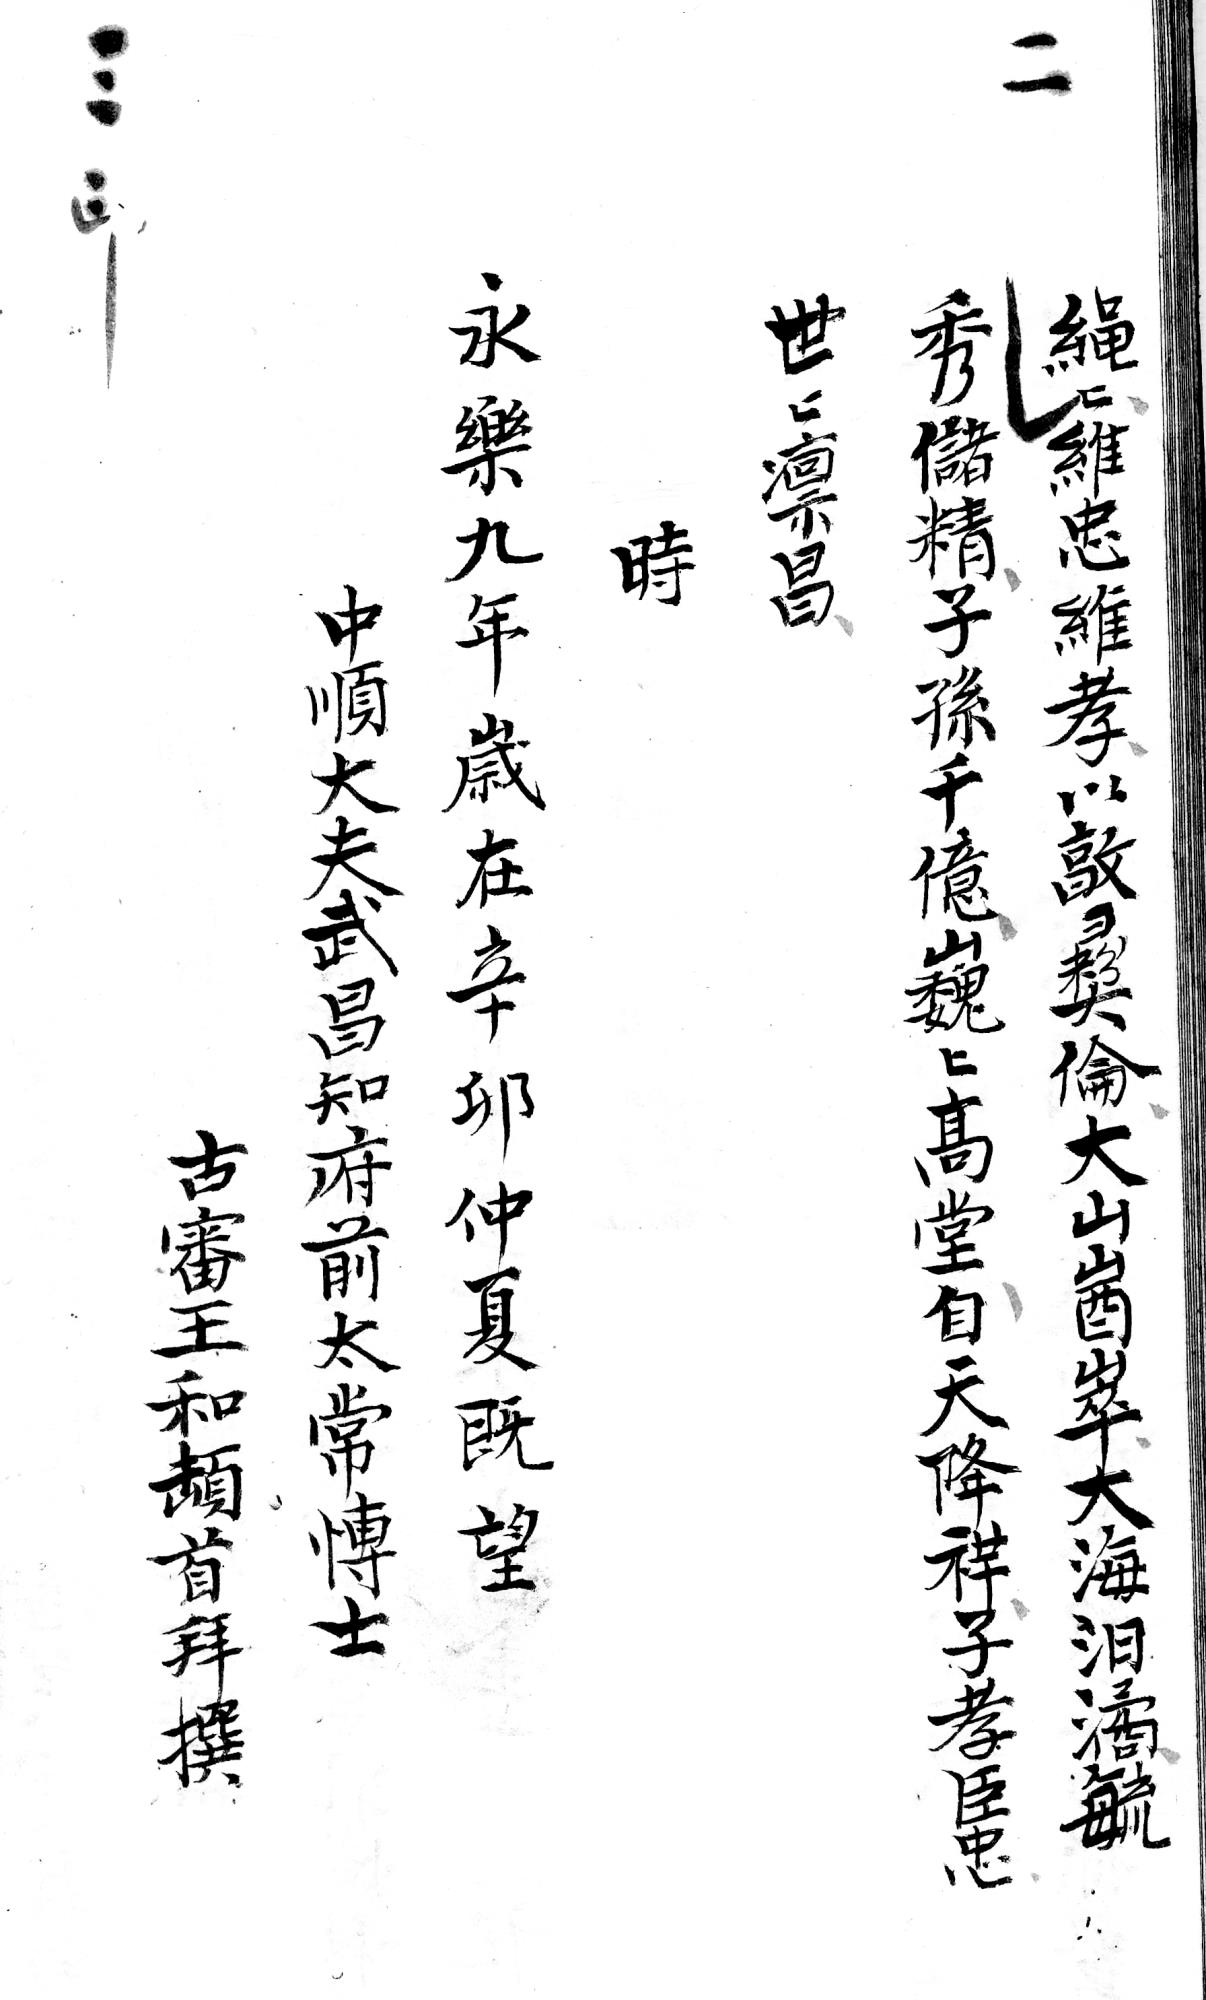 二
繩〻維忠維孝以敦彞倫大山崷崒大海汨潏毓
秀儲精子孫千億巍〻高堂自天降祥子孝臣忠
世〻凛昌
時
永樂九年歲在辛卯仲夏既望
中順大夫武昌知府前太常博士
古審王和頓首拜撰
三